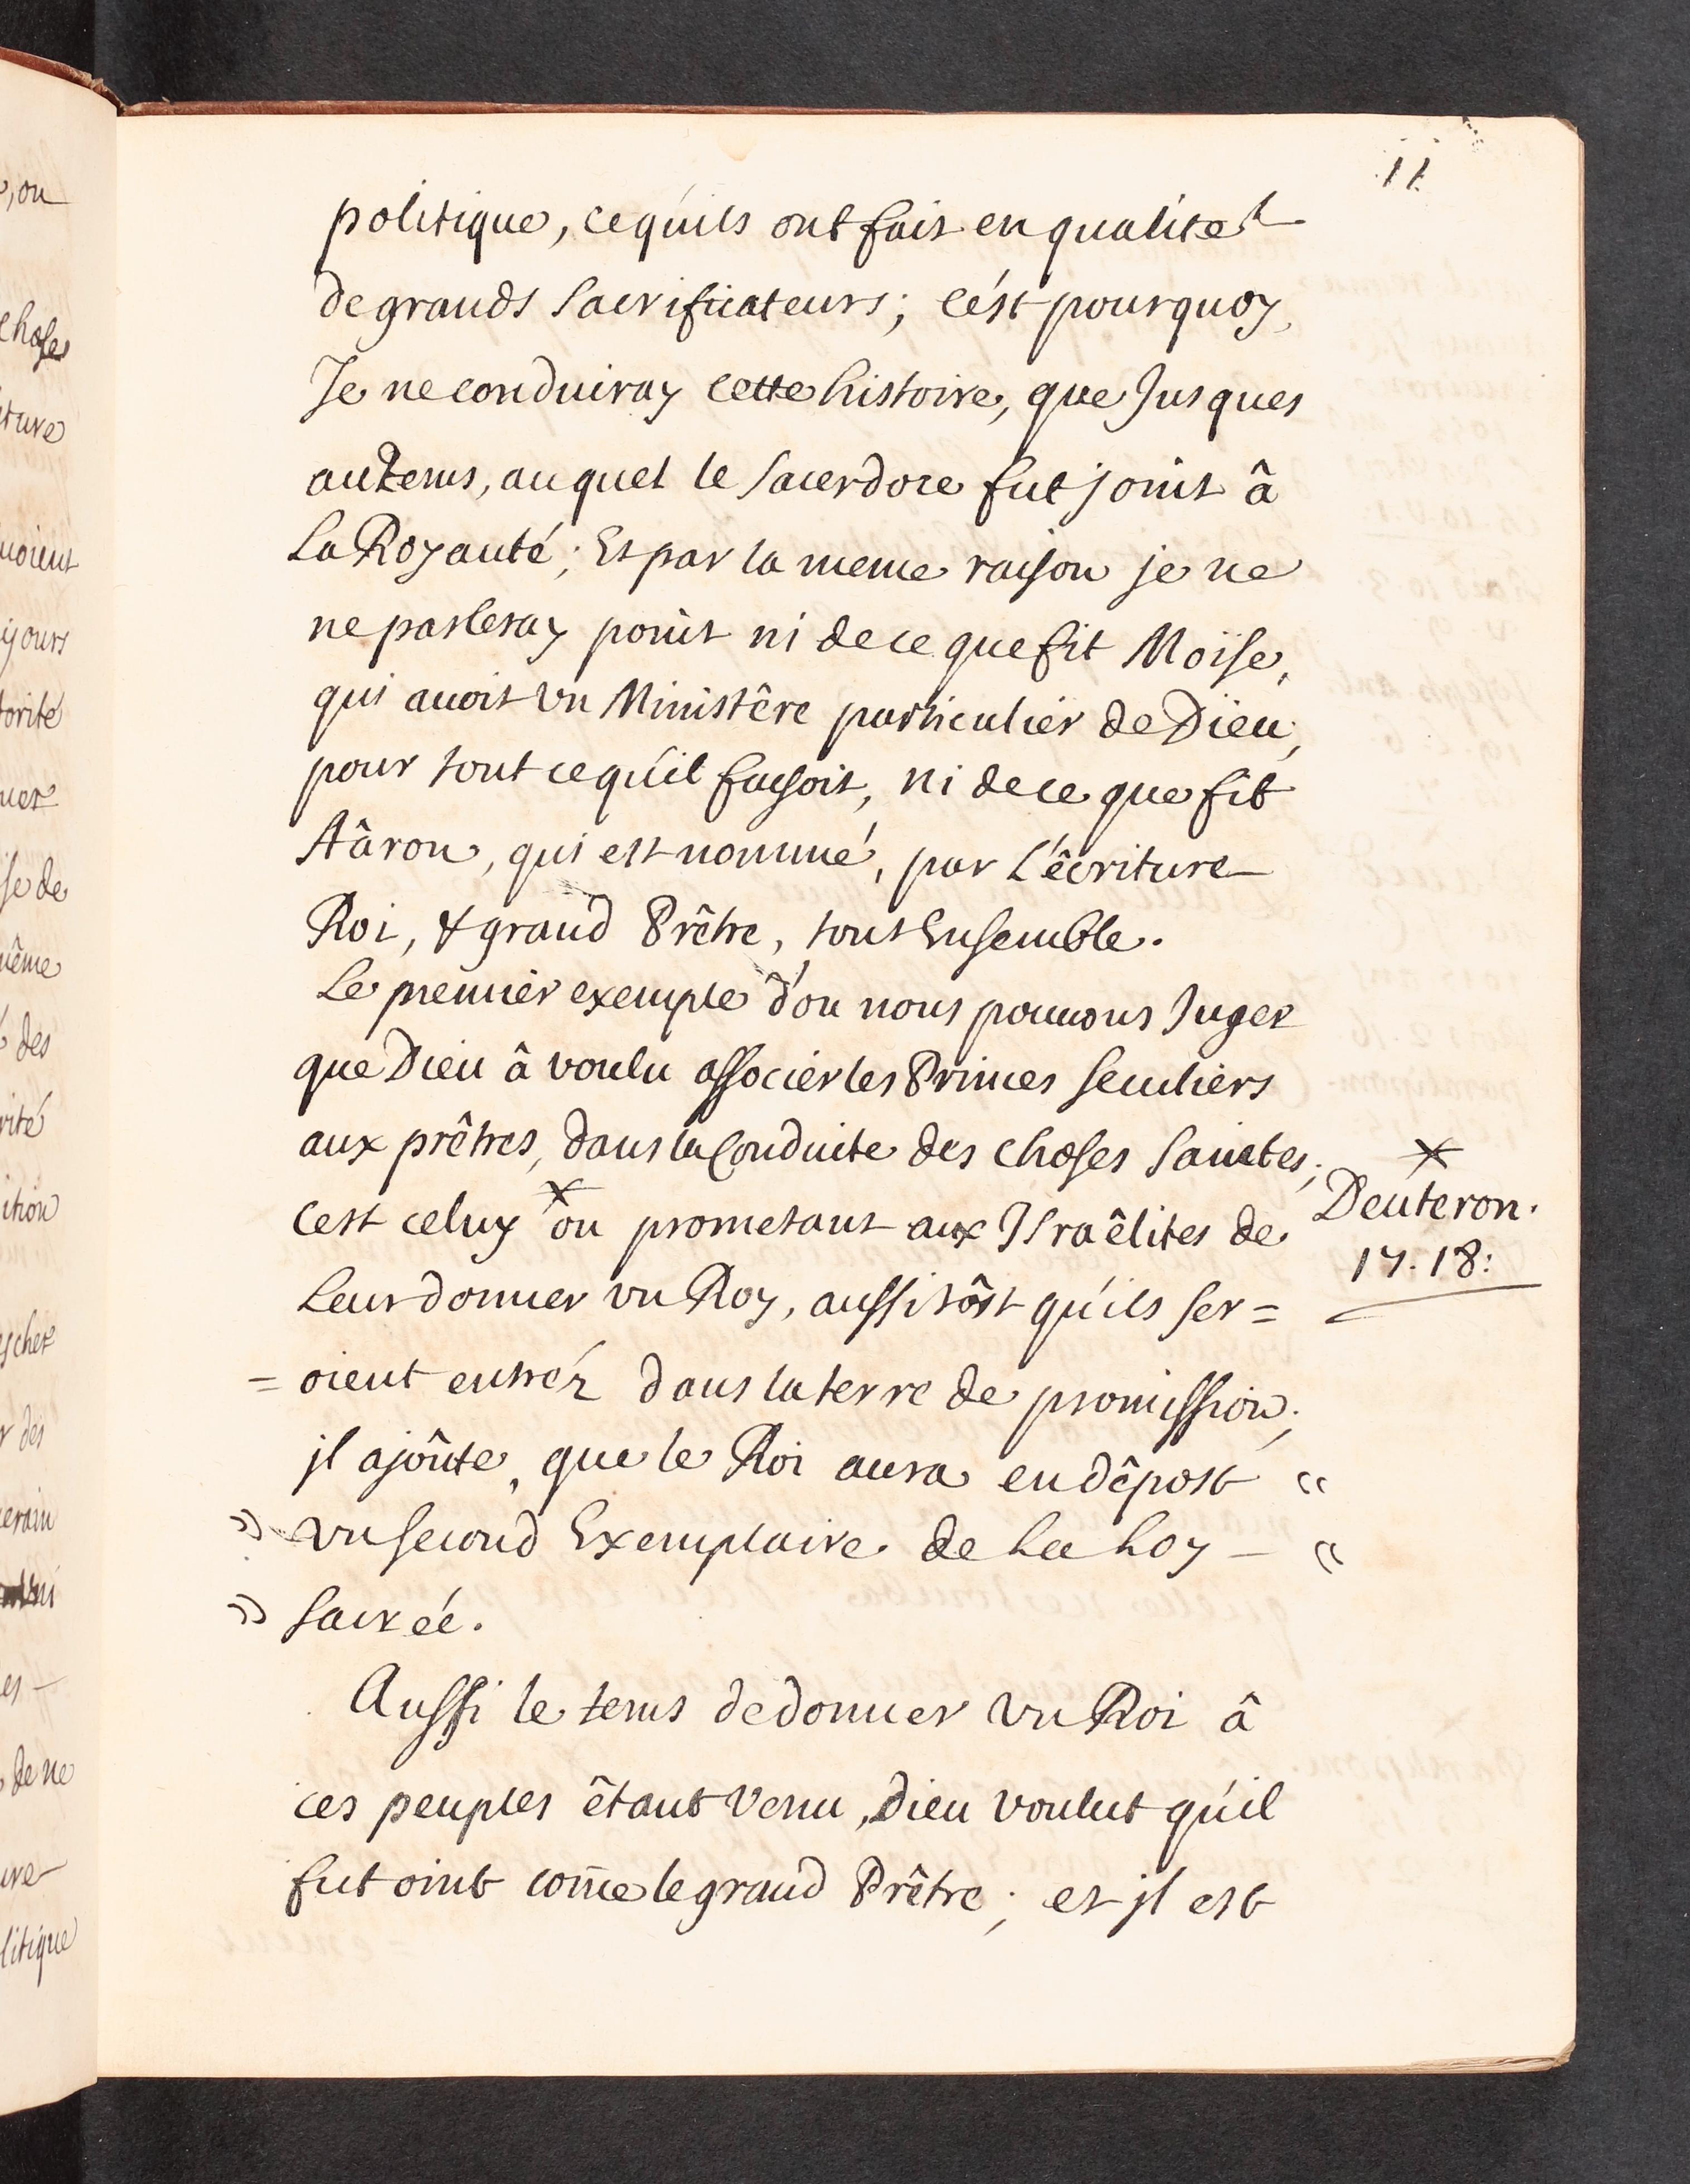 11
politique, ce qu'ils ont fait en qualité
de grands Sacrificateurs; c'est pourquoy,
Je ne conduiray cette histoire, que Jusques
au tems, auquel le Sacerdoce fut joint â
La Royauté; Et par la meme raison je ne
ne parleray point ni de ce que fit Moïse,
qui auoit vn Ministêre particulier de Dieu,
pour tout ce qu'il faisoit, ni de ce que fit
Aâron, qui est nommé, par L'êcriture
Roi, & grand Prêtre, tout Ensemble.
Le premier exemple d'ou nous pouuons Juger
que Dieu â voulu associer les Princes seculiers
aux prêtres, dans la Conduite des choses Sainctes;
c'est celuy ˣ ou prometant aux Israêlites de
Leur donner vn Roy, aussi tôst qu'ils ser=
=oient entréz dans la terre de promission;
jl ajoûte, que le Roi aura en dêpost "
» vn second Exemplaire de La Loy — "
» Sacrée.
Aussi le tems de donner vn Roi â
ces peuples êtant venu, Dieu voulut qu'il
fut oint com̄e le grand Prêtre; et jl est
x
Deuteron.
17. 18:
, ou
choses
ture
uoient
jours
torité
uer
se de
même
des
rité
ition
scher
r des
uerain
es —
de ne
ure
litique